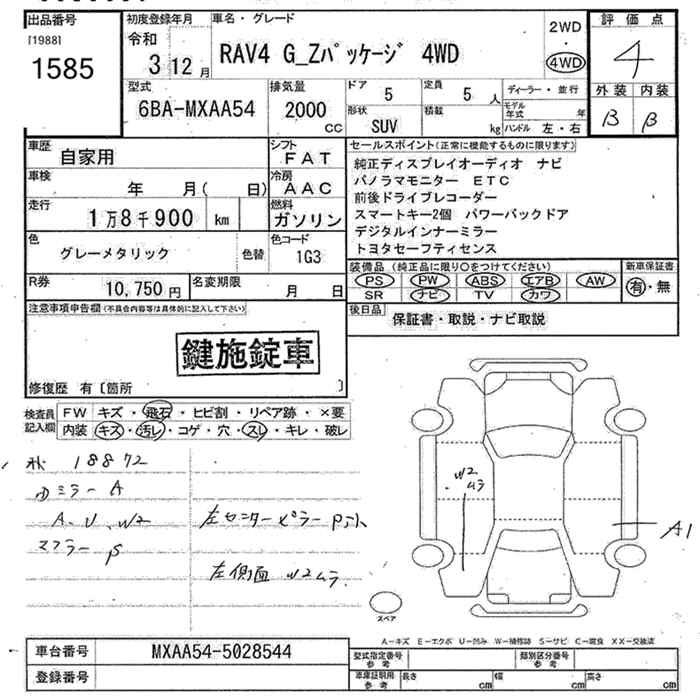 出品番号
[1988]
1585
初度登録年月
令和
3 12 月
車名・グレード
RAV4 G_Zパッケージ 4WD
2WD
・
4WD
評価点
4
外装 内装
B B
型式
6BA-MXAA54
排気量
2000
CC
ドア
5
定員
5 人
形状
SUV
積載
kg
ディーラー・並行
モデル年式 年
ハンドル 左・右
車歴
自家用
シフト
FAT
車検
年 月( 日)
冷房
AAC
走行
1万8千900 km
燃料
ガソリン
色
グレーメタリック
色替
色コード
1G3
R券
10,750 円
名変期限
月 日
セールスポイント(正常に機能するものに限ります)
純正ディスプレイオーディオ ナビ
パノラマモニター ETC
前後ドライブレコーダー
スマートキー2個 パワーバックドア
デジタルインナーミラー
トヨタセーフティセンス
装備品(純正品に限り○をつけてください)
PS PW ABS エアB AW
SR ナビ TV カワ
新車保証書
有・無
後日品
保証書・取説・ナビ取説
注意事項申告欄(不具合内容等は具体的に記入して下さい)
鍵施錠車
修復歴 有〔箇所 〕
検査員記入欄
FW キズ・飛石・ヒビ割・リペア跡・×要
内装 キズ・汚レ・コゲ・穴・スレ・キレ・破レ
18872
ミラー A
A、U、W2
マフラー S
左センターピラー
左側面 W2ムラ
W2
ムラ
A1
スペア
A-キズ E-エクボ U-凹み W-補修跡 S-サビ C-腐食 XX-交換済
車台番号
MXAA54-5028544
登録番号
型式指定番号
参考
類別区分番号
参考
車庫証明用
参考
長さ cm
幅 cm
高さ cm